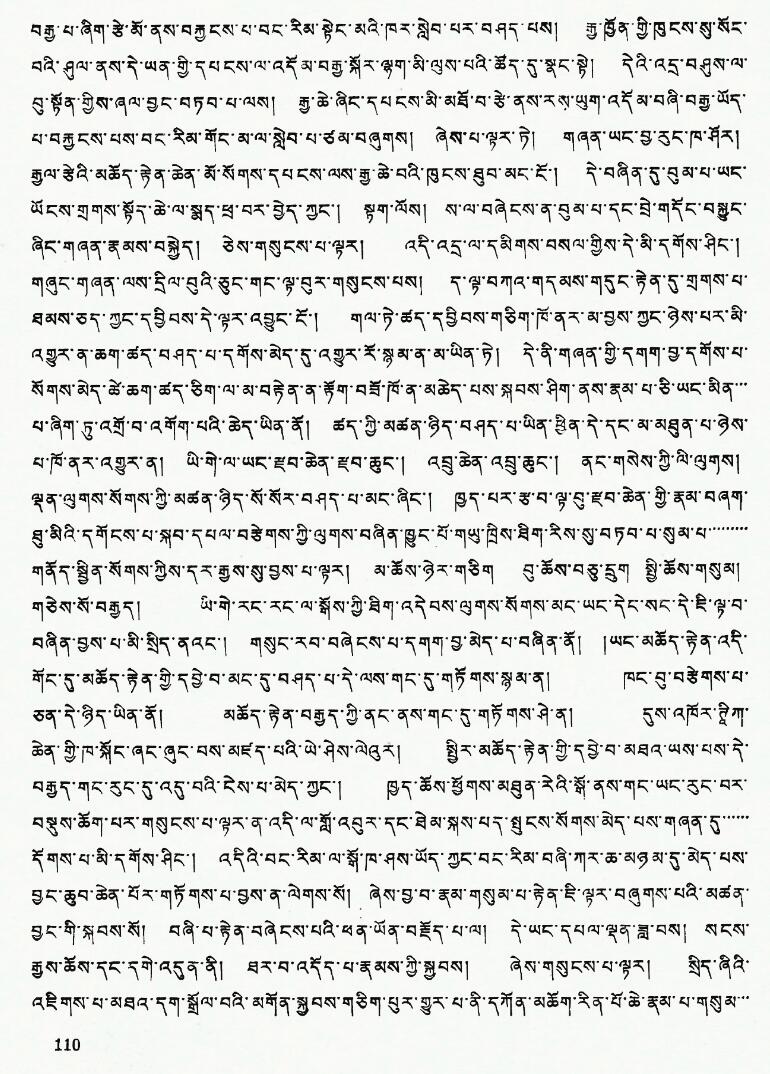 བརྒྱ་པ་ཞིག་རྩེ་མོ་ནས་བརྐྱངས་པ་བང་རིམ་སྟེང་མའི་ཁར་སླེབ་པར་བཤད་པས། རྒྱ་ཁྱོན་གྱི་ཁུངས་སུ་སོང་
བའི་ཤུལ་ནས་དེ་ཡན་གྱི་དཔངས་ལ་འདོམ་བརྒྱ་སྐོར་ལྷག་མི་ལུས་པའི་ཚོད་དུ་སྣང་སྟེ། དེའི་འདྲ་བཤུས་ལ་
བུ་སྟོན་གྱིས་ཞལ་བྱང་བཏབ་པ་ལས། རྒྱ་ཆེ་ཞིང་དཔངས་མི་མཐོ་བ་རྩེ་ནས་རས་ཡུག་འདོམ་བཞི་བརྒྱ་ཡོད་
པ་བརྐྱངས་པས་བང་རིམ་གོང་མ་ལ་སླེབ་པ་ཙམ་བཞུགས། ཞེས་པ་ལྟར་ཏེ། གཞན་ཡང་བྱ་རུང་ཁ་ཤོར།
རྒྱལ་རྩེའི་མཆོད་རྟེན་ཆེན་མོ་སོགས་དཔངས་ལས་རྒྱ་ཆེ་བའི་ཁུངས་ཐུབ་མང་ངོ་། དེ་བཞིན་དུ་བུམ་པ་ཡང་
ཡོངས་གྲགས་སྟོད་ཆེ་ལ་སྨད་ཕྲ་བར་བྱེད་ཀྱང་། སྟག་ལོས། ས་ལ་བཞེངས་ན་བུམ་པ་དང་བྲེ་གདོང་བསྐྱུང་
ཞིང་གཞན་རྣམས་བསྐྱེད། ཅེས་གསུངས་པ་ལྟར། འདི་འདྲ་ལ་དམིགས་བསལ་གྱིས་དེ་མི་དགོས་ཤིང་།
གཞུང་གཞན་ལས་དྲིལ་བུའི་ཅུང་གང་ལྟ་བུར་གསུངས་པས། ད་ལྟ་བཀའ་གདམས་གདུང་རྟེན་དུ་གྲགས་པ་
ཐམས་ཅད་ཀྱང་དབྱིབས་དེ་ལྟར་འབྱུང་ངོ་། གལ་ཏེ་ཚད་དབྱིབས་གཅིག་ཁོ་ནར་མ་བྱས་ཀྱང་ཉེས་པར་མི་
འགྱུར་ན་ཆག་ཚད་བཤད་པ་དགོས་མེད་དུ་འགྱུར་རོ་སྙམ་ན་མ་ཡིན་ཏེ། དེ་ནི་གཞན་གྱི་དགག་བྱ་དགོས་པ་
སོགས་མེད་ཚེ་ཆག་ཚད་ཅིག་ལ་མ་བརྟེན་ན་རྟོག་བཟོ་ཁོ་ན་མཆེད་པས་སྐབས་ཤིག་ནས་རྣམ་པ་ཅི་ཡང་མིན་
པ་ཞིག་ཏུ་འགྲོ་བ་འགོག་པའི་ཆེད་ཡིན་ནོ། ཚད་ཀྱི་མཚན་ཉིད་བཤད་པ་ཡིན་ཕྱིན་དེ་དང་མ་མཐུན་པ་ཉེས་
པ་ཁོ་ནར་འགྱུར་ན། ཡི་གེ་ལ་ཡང་རྫབ་ཆེན་རྫབ་ཆུང་། འབྲུ་ཆེན་འབྲུ་ཆུང་། ནང་གསེས་ཀྱི་ལི་ལུགས།
ལྡན་ལུགས་སོགས་ཀྱི་མཚན་ཉིད་སོ་སོར་བཤད་པ་མང་ཞིང་། ཁྱད་པར་རྩ་བ་ལྟ་བུ་རྫབ་ཆེན་གྱི་རྣམ་བཞག་
ཐུ་མིའི་དགོངས་པ་སྐབ་དཔལ་བརྩེགས་ཀྱི་ལུགས་བཞིན་ཁྱུང་པོ་གཡུ་ཁྲིས་ཐིག་རིས་སུ་བཏབ་པ་སུམ་པ་
གནོད་སྦྱིན་སོགས་ཀྱིས་དར་རྒྱས་སུ་བྱས་པ་ལྟར། མ་ཆོས་ཉེར་གཅིག བུ་ཆོས་བཅུ་དྲུག སྤྱི་ཆོས་གསུམ།
གཅེས་སོ་བརྒྱད། ཡི་གེ་རང་རང་ལ་སྒོས་ཀྱི་ཐིག་འདེབས་ལུགས་སོགས་མང་ཡང་དེང་སང་དེ་ཇི་ལྟ་བ་
བཞིན་བྱས་པ་མི་སྲིད་ནའང་། གསུང་རབ་བཞེངས་པ་དགག་བྱ་མེད་པ་བཞིན་ནོ། །ཡང་མཆོད་རྟེན་འདི་
གོང་དུ་མཆོད་རྟེན་གྱི་དབྱེ་བ་མང་དུ་བཤད་པ་དེ་ལས་གང་དུ་གཏོགས་སྙམ་ན། ཁང་བུ་བརྩེགས་པ་
ཅན་དེ་ཉིད་ཡིན་ནོ། མཆོད་རྟེན་བརྒྱད་ཀྱི་ནང་ནས་གང་དུ་གཏོགས་ཤེ་ན། དུས་འཁོར་ཊཱིཀ་
ཆེན་གྱི་ཁ་སྐོང་ཞང་ཞུང་བས་མཛད་པའི་ཡེ་ཤེས་ལེའུར། སྤྱིར་མཆོད་རྟེན་གྱི་དབྱེ་བ་མཐའ་ཡས་པས་དེ་
བརྒྱད་གང་རུང་དུ་འདུ་བའི་ངེས་པ་མེད་ཀྱང་། ཁྱད་ཆོས་ཕྱོགས་མཐུན་རེའི་སྒོ་ནས་གང་ཡང་རུང་བར་
བསྡུས་ཆོག་པར་གསུངས་པ་ལྟར་ན་འདི་ལ་གློ་འབུར་དང་ཐེམ་སྐས་པད་སྤུངས་སོགས་མེད་པས་གཞན་དུ་
དོགས་པ་མི་དགོས་ཤིང་། འདིའི་བང་རིམ་ལ་སྒོ་ཁ་ཤས་ཡོད་ཀྱང་བང་རིམ་བཞི་ཀར་ཆ་མཉམ་དུ་མེད་པས་
བྱང་ཆུབ་ཆེན་པོར་གཏོགས་པ་བྱས་ན་ལེགས་སོ། ཞེས་བྱ་བ་རྣམ་གསུམ་པ་རྟེན་ཇི་ལྟར་བཞུགས་པའི་མཚན་
བྱང་གི་སྐབས་སོ། བཞི་པ་རྟེན་བཞེངས་པའི་ཕན་ཡོན་བརྗོད་པ་ལ། དེ་ཡང་དཔལ་ལྡན་ཟླ་བས། སངས་
རྒྱས་ཆོས་དང་དགེ་འདུན་ནི། ཐར་བ་འདོད་པ་རྣམས་ཀྱི་སྐྱབས། ཞེས་གསུངས་པ་ལྟར། སྲིད་ཞིའི་
འཇིགས་པ་མཐའ་དག་སྒྲོལ་བའི་མགོན་སྐྱབས་གཅིག་པུར་གྱུར་པ་ནི་དཀོན་མཆོག་རིན་པོ་ཆེ་རྣམ་པ་གསུམ་
110